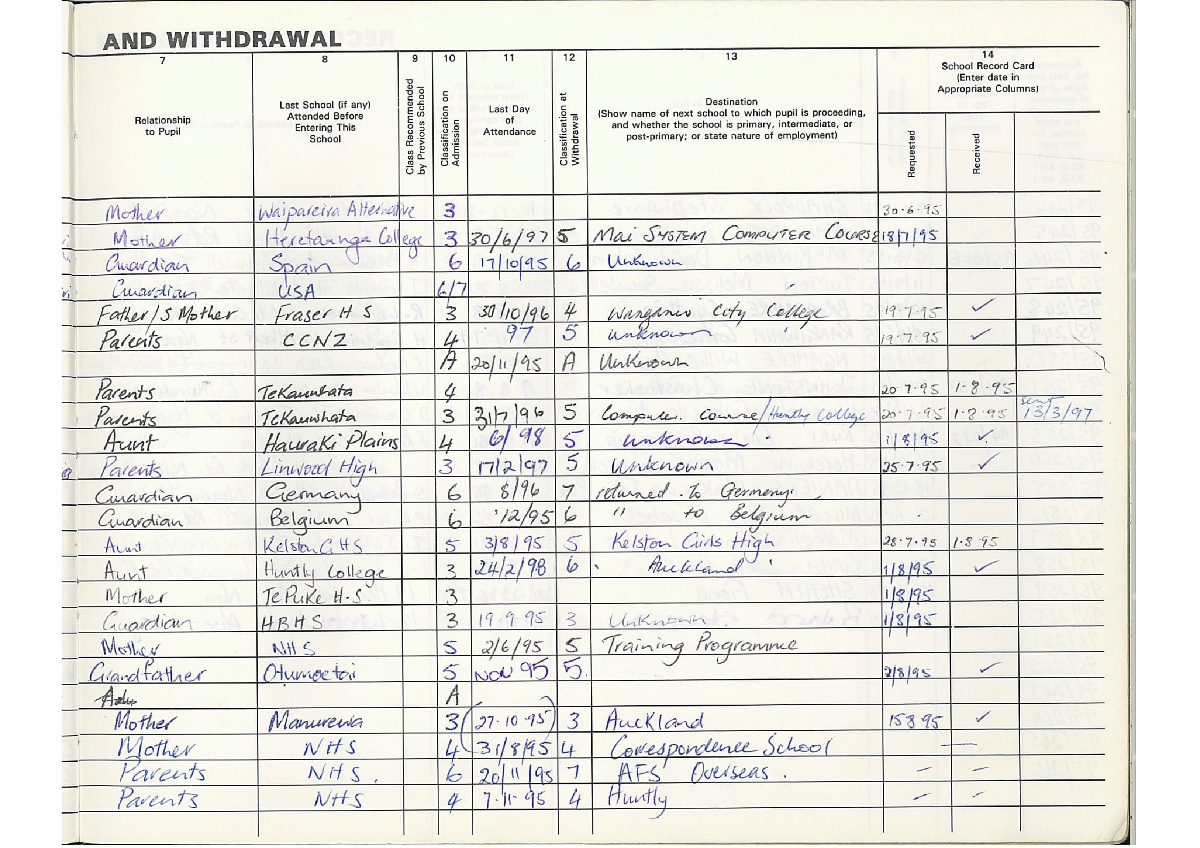 AND WITHDRAWAL
7 8 9 10 11 12 13 14
Relationship to Pupil
Last School (if any) Attended Before Entering This School
Class Recommended by Previous School
Classification on Admission
Last Day of Attendance
Classification at Withdrawal
Destination
(Show name of next school to which pupil is proceeding, and whether the school is primary, intermediate, or post-primary; or state nature of employment)
School Record Card (Enter date in Appropriate Columns)
Requested
Received
Mother Waipareira Alternative 3 30·6·95
Mother Heretaunga College 3 30/6/97 5 Mai SYSTEM COMPUTER COURSE 18/7/95
Guardian Spain 6 17/10/95 6 Unknown
Guardian USA 6/7
Father/S Mother Fraser H S 3 30/10/96 4 Wanganui City College 19·7·95 ✓
Parents CCNZ 4 97 5 unknown 19·7·95 ✓
A 20/11/95 A Unknown
Parents TeKauwhata 4 20·7·95 1·8·95
Parents TeKauwhata 3 31/7/96 5 Computer course/Huntly College 20·7·95 1·8·95 sent 13/3/97
Aunt Hauraki Plains 4 6/98 5 unknown 1/8/95 ✓
Parents Linwood High 3 17/2/97 5 Unknown 25·7·95 ✓
Guardian Germany 6 8/96 7 returned to Germany
Guardian Belgium 6 '12/95 6 " to Belgium
Aunt Kelston G H S 5 3/8/95 5 Kelston Girls High 28·7·95 1·8·95
Aunt Huntly College 3 24/2/98 6 Auckland 1/8/95 ✓
Mother Te Puke H·S 3 1/8/95
Guardian HBHS 3 19·9·95 3 Unknown 1/8/95
Mother NHS 5 2/6/95 5 Training Programme
Grandfather Otumoetai 5 NOV 95 5. 2/8/95 ✓
A
Mother Manurewa 3 (27·10·95) 3 Auckland 15895 ✓
Mother NHS 4 31/8/95 4 Correspondence School —
Parents NHS. 6 20/11/95 7 AFS Overseas. – –
Parents NHS 4 7·11·95 4 Huntly – –